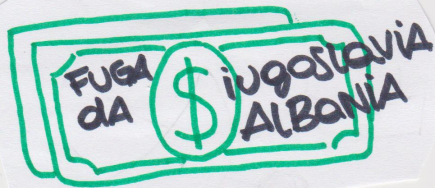 FUGA $ iugoSLAViA
dA ALBANiA